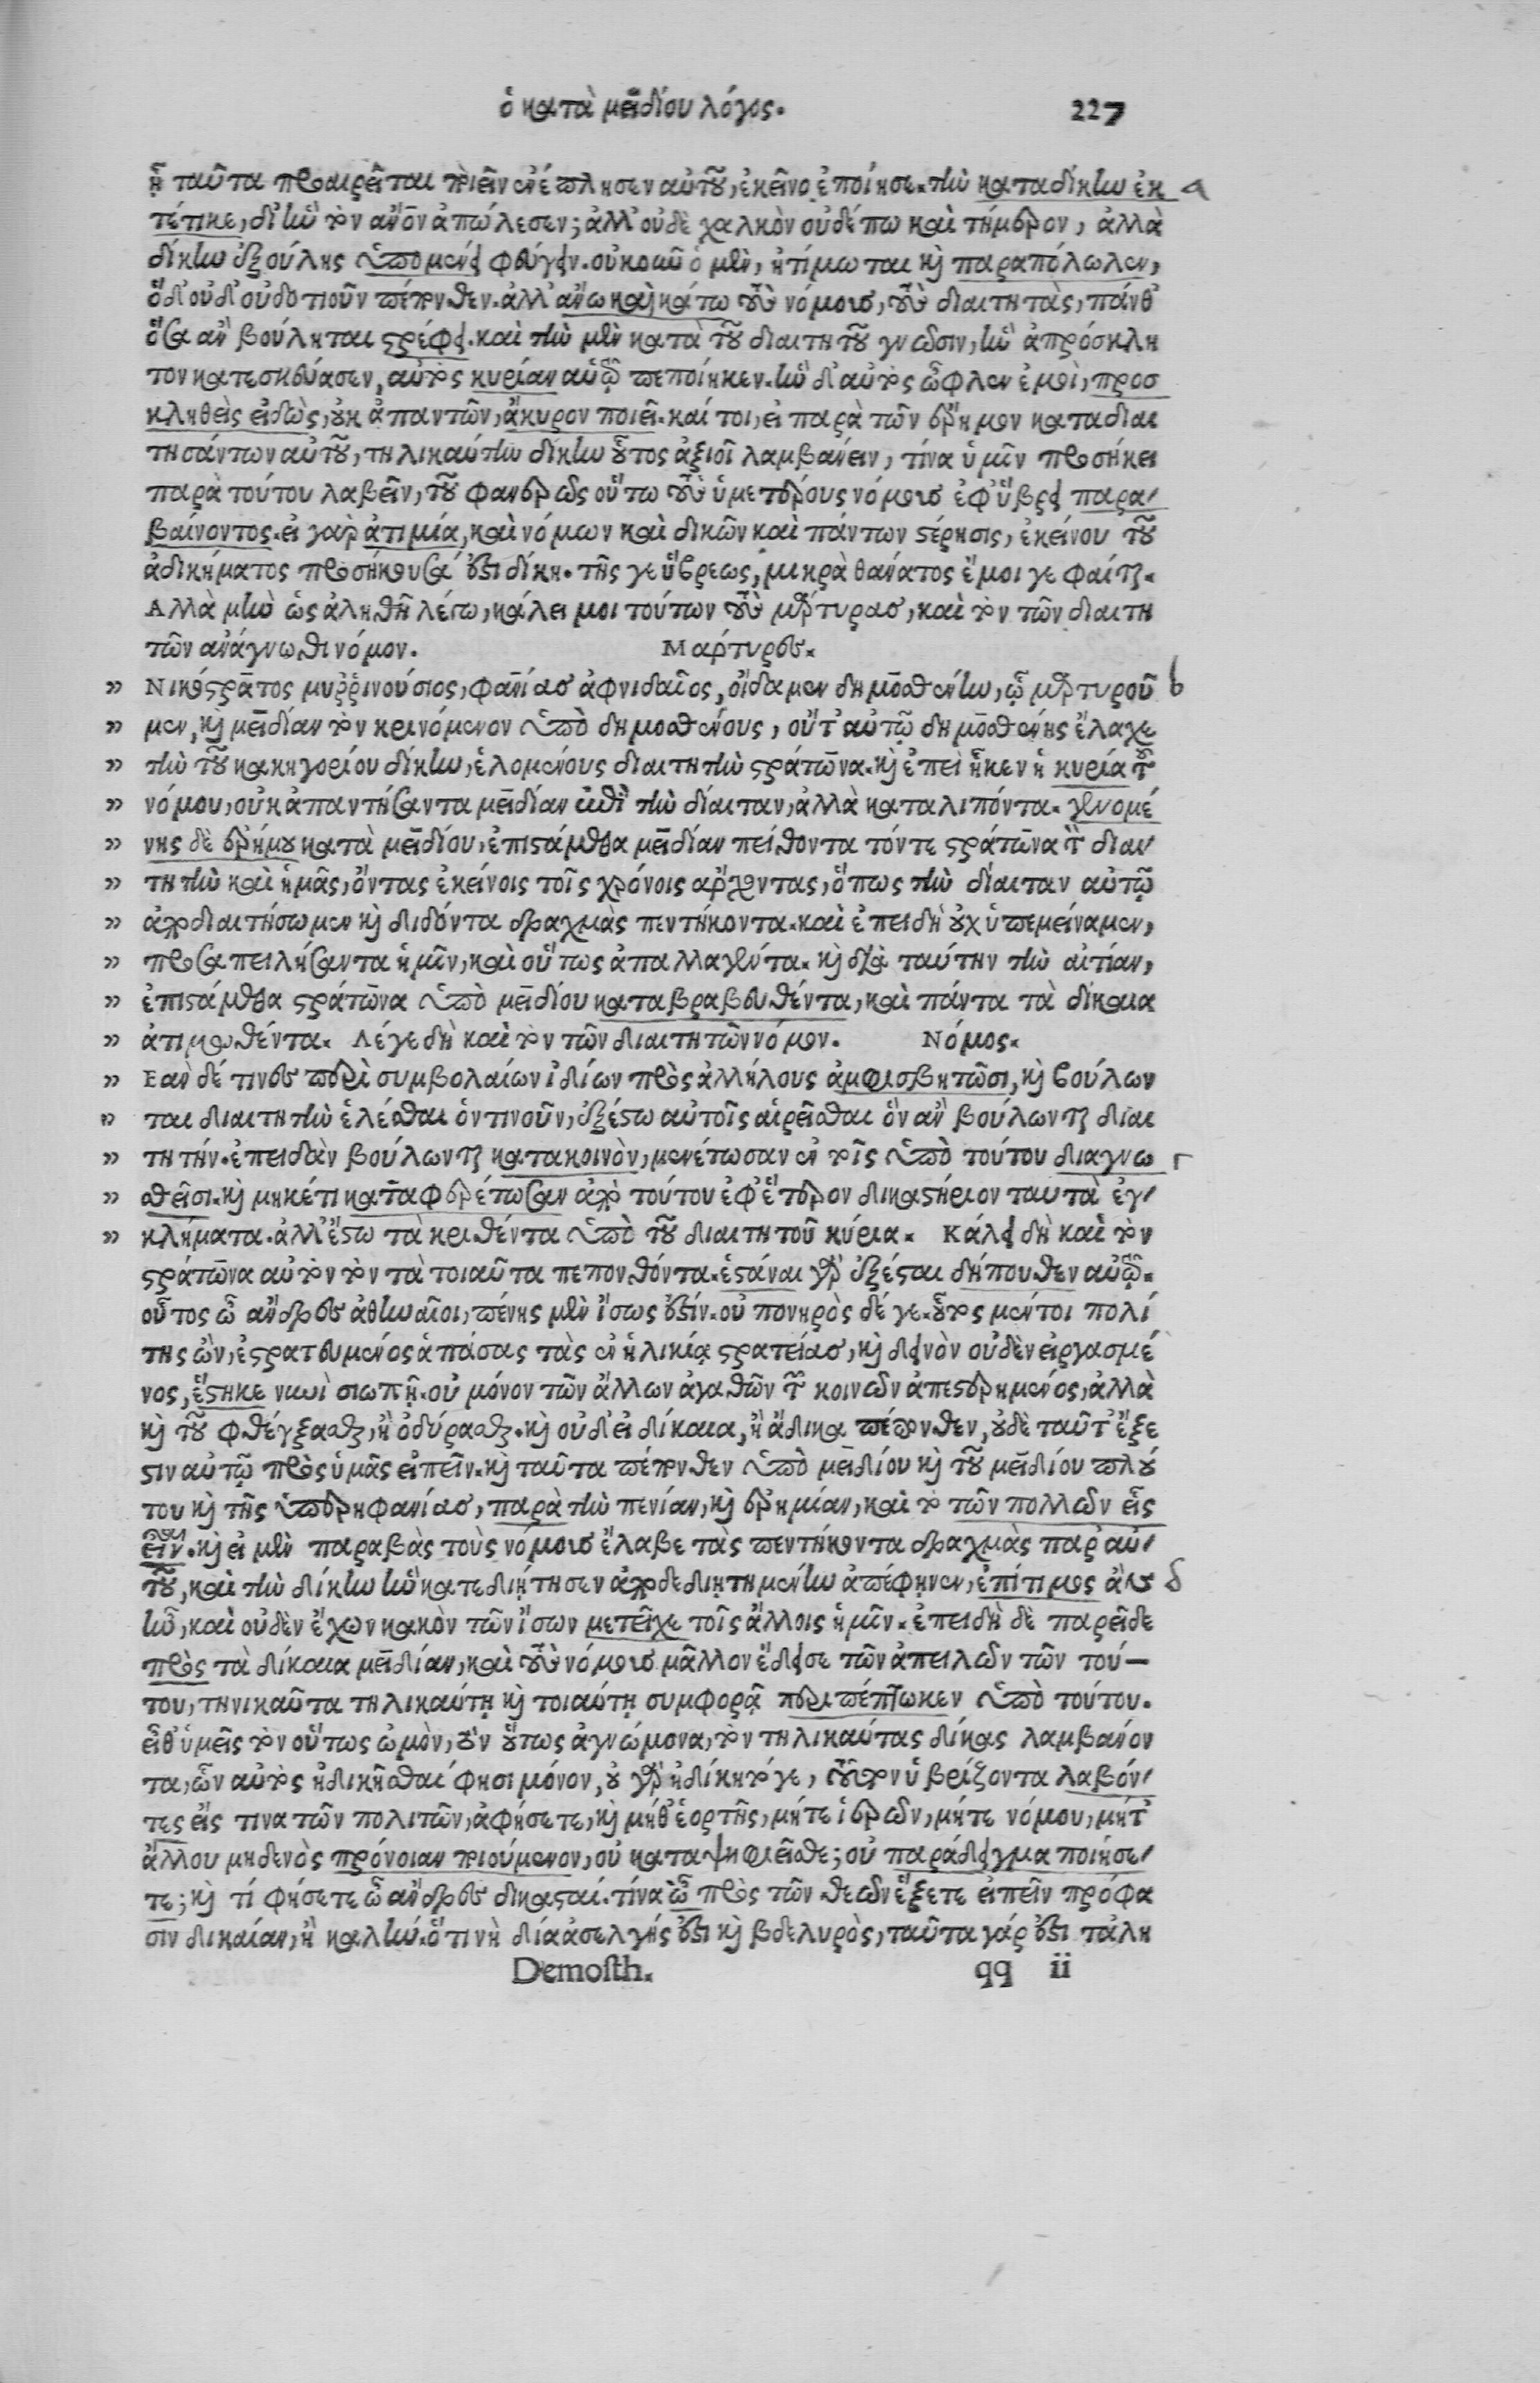 ὁ κατὰ μειδίου λόγος. 227
ἢ ταῦτα προαιρεῖται ποιεῖν ἐνέπλησεν αὐτοῦ, ἐκεῖνο ἐποίησε. τὴν καταδίκην ἐκ a
τέτικε, δι' ἣν τὸν ἀγῶν ἀπώλεσεν; ἀλλ' οὐδὲ χαλκὸν οὐδέπω καὶ τήμερον, ἀλλὰ
δίκην ἐξούλης ὑπομένει φεύγειν. οὐκοῦν ὁ μὲν, ἠτίμωται καὶ παραπόλωλεν,
ὁ δ' οὐδ' ὁτιοῦν πέπονθεν. ἀλλ' ἄνω καὶ κάτω τοὺς νόμους, τοὺς διαιτητὰς, πάνθ'
ὅσα ἂν βούληται στρέφει. καὶ τὴν μὲν κατὰ τοῦ διαιτητοῦ γνῶσιν, ἣν ἀπρόσκλη
τον κατεσκεύασεν, αὐτὸς κυρίαν αὑτῷ πεποίηκεν. ἣν δ' αὐτὸς ὦφλεν ἐμοὶ, προσ
κληθεὶς εἰδὼς, οὐκ ἀπαντῶν, ἄκυρον ποιεῖ. καί τοι, εἰ παρὰ τῶν ἔρημον καταδιαι
τησάντων αὐτοῦ, τηλικαύτην δίκην οὗτος ἀξιοῖ λαμβάνειν, τίνα ὑμῖν προσήκει
παρὰ τούτου λαβεῖν, τοῦ φανερῶς οὕτω τοὺς ὑμετέρους νόμους ἐφ' ὕβρει παρα-
βαίνοντος. εἰ γαρ ἀτιμία, καὶ νόμων καὶ δικῶν καὶ πάντων στέρησις, ἐκείνου τοῦ
ἀδικήματος προσήκουσά ἐστι δίκη. τῆς γε ὕβρεως, μικρὰ θάνατος ἔμοιγε φαίνεται.
Αλλὰ μὴν ὡς ἀληθῆ λέγω, κάλει μοι τούτων τοὺς μάρτυρας, καὶ τὸν τῶν διαιτη
τῶν ἀνάγνωθι νόμον. Μάρτυρες.
» Νικόστρατος μυῤῥινούσιος, φανίας ἀφνιδαῖος, οἴδαμεν δημοσθένην, ᾧ μαρτυροῦ b
» μεν, καὶ μειδίαν τὸν κρινόμενον ὑπὸ δημοσθένους, οὔτ' αὐτῷ δημοσθένης ἔλαχε
» τὴν τοῦ κακηγορίου δίκην, ἑλομένους διαιτητὴν στράτωνα. καὶ ἐπεὶ ἧκεν ἡ κυρία τοῦ
» νόμου, οὐκ ἀπαντήσαντα μειδίαν ἐπὶ τὴν δίαιταν, ἀλλὰ καταλιπόντα. γενομέ
» νης δὲ ἐρήμου κατὰ μειδίου, ἐπιστάμεθα μειδίαν πείθοντα τόν τε στράτωνα τὸν διαι
» τητὴν καὶ ἡμᾶς, ὄντας ἐκείνοις τοῖς χρόνοις ἄρχοντας, ὅπως τὴν δίαιταν αὐτῷ
» ἀποδιαιτήσωμεν καὶ διδόντα δραχμὰς πεντήκοντα. καὶ ἐπειδὴ οὐχ ὑπεμείναμεν,
» προσαπειλήσαντα ἡμῖν, καὶ οὕτως ἀπαλλαγέντα. καὶ διὰ ταύτην τὴν αἰτίαν,
» ἐπιστάμεθα στράτωνα ὑπὸ μειδίου καταβραβευθέντα, καὶ πάντα τὰ δίκαια
» ἀτιμωθέντα. Λέγε δὴ καὶ τὸν τῶν διαιτητῶν νόμον. Νόμος.
» Εαν δέ τινες περὶ συμβολαίων ἰδίων πρὸς ἀλλήλους ἀμφισβητῶσι, καὶ βούλων
» ται διαιτητὴν ἑλέσθαι ὁντινοῦν, ἐξέστω αὐτοῖς αἱρεῖσθαι ὃν ἂν βούλωνται διαι
» τητήν. ἐπειδὰν βούλωνται κατακοινὸν, μενέτωσαν ἐν τοῖς ὑπὸ τούτου διαγνω Γ
» σθεῖσι. καὶ μηκέτι καταφερέτωσαν ἀπὸ τούτου ἐφ' ἕτερον δικαστήριον ταυτὰ ἐγ-
» κλήματα. ἀλλ' ἔστω τὰ κριθέντα ὑπὸ τοῦ διαιτητοῦ κύρια. Κάλει δὴ καὶ τὸν
στράτωνα αὐτὸν τὸν τὰ τοιαῦτα πεπονθότα. ἑστάναι γὰρ ἐξέσται δήπουθεν αὐτῷ.
οὗτος ὦ ἄνδρες ἀθηναῖοι, πένης μὲν ἴσως ἐστίν. οὐ πονηρὸς δέ γε. οὗτος μέντοι πολί
της ὢν, ἐστρατευμένος ἁπάσας τὰς ἐν ἡλικίᾳ στρατείας, καὶ δεινὸν οὐδὲν εἰργασμέ
νος, ἕστηκε νυνὶ σιωπῇ. οὐ μόνον τῶν ἄλλων ἀγαθῶν τῶν κοινῶν ἀπεστερημένος, ἀλλὰ
καὶ τοῦ φθέγξασθαι, ἢ ὀδύρασθαι. καὶ οὐδ' εἰ δίκαια, ἢ ἄδικα πέπονθεν, οὐδὲ ταῦτ' ἔξε
στιν αὐτῷ πρὸς ὑμᾶς εἰπεῖν. καὶ ταῦτα πέπονθεν ὑπὸ μειδίου καὶ τοῦ μειδίου πλού
του καὶ τῆς ὑπερηφανίας, παρὰ τὴν πενίαν, καὶ ἐρημίαν, καὶ τὸ τῶν πολλῶν εἷς
εἶν. καὶ εἰ μὲν παραβὰς τοὺς νόμους ἔλαβε τὰς πεντήκοντα δραχμὰς παρ' αὐ-
τοῦ, καὶ τὴν δίκην ἣν κατεδιῄτησεν ἀποδεδιῃτημένην ἀπέφηνεν, ἐπίτιμος ἂν δ
ἦν, καὶ οὐδὲν ἔχων κακὸν τῶν ἴσων μετεῖχε τοῖς ἄλλοις ἡμῖν. ἐπειδὴ δὲ παρεῖδε
πρὸς τὰ δίκαια μειδίαν, καὶ τοὺς νόμους μᾶλλον ἔδεισε τῶν ἀπειλῶν τῶν τού-
του, τηνικαῦτα τηλικαύτῃ καὶ τοιαύτῃ συμφορᾷ περιπέπτωκεν ὑπὸ τούτου.
εἶθ' ὑμεῖς τὸν οὕτως ὠμὸν, τὸν οὕτως ἀγνώμονα, τὸν τηλικαύτας δίκας λαμβάνον
τα, ὧν αὐτὸς ἠδικῆσθαί φησι μόνον, οὐ γὰρ ἠδίκητό γε, τοῦτον ὑβρίζοντα λαβόν-
τες εἴς τινα τῶν πολιτῶν, ἀφήσετε, καὶ μήθ' ἑορτῆς, μήτε ἱερῶν, μήτε νόμου, μήτ'
ἄλλου μηδενὸς πρόνοιαν ποιούμενον, οὐ καταψηφιεῖσθε; οὐ παράδειγμα ποιήσε-
τε; καὶ τί φήσετε ὦ ἄνδρες δικασταί. τίνα ὦ πρὸς τῶν θεῶν ἕξετε εἰπεῖν πρόφα
σιν δικαίαν, ἢ καλήν. ὅτι νὴ δία ἀσελγής ἐστι καὶ βδελυρὸς, ταῦτα γάρ ἐστι τἀλη
Demosth. qq ii